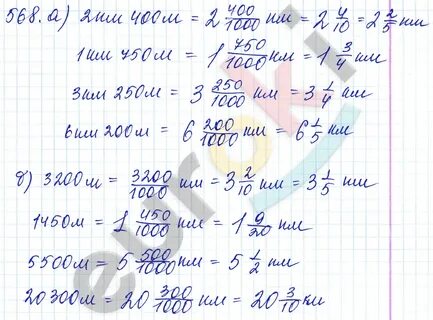 568. а) 2 км 400 м = 2 400/1000 км = 2 4/10 = 2 2/5 км
1 км 750 м = 1 750/1000 км = 1 3/4 км
3 км 250 м = 3 250/1000 км = 3 1/4 км
6 км 200 м = 6 200/1000 км = 6 1/5 км
б) 3200 м = 3200/1000 км = 3 2/10 км = 3 1/5 км
1450 м = 1 450/1000 км = 1 9/20 км
5500 м = 5 500/1000 км = 5 1/2 км
20 300 м = 20 300/1000 км = 20 3/10 км
euroki